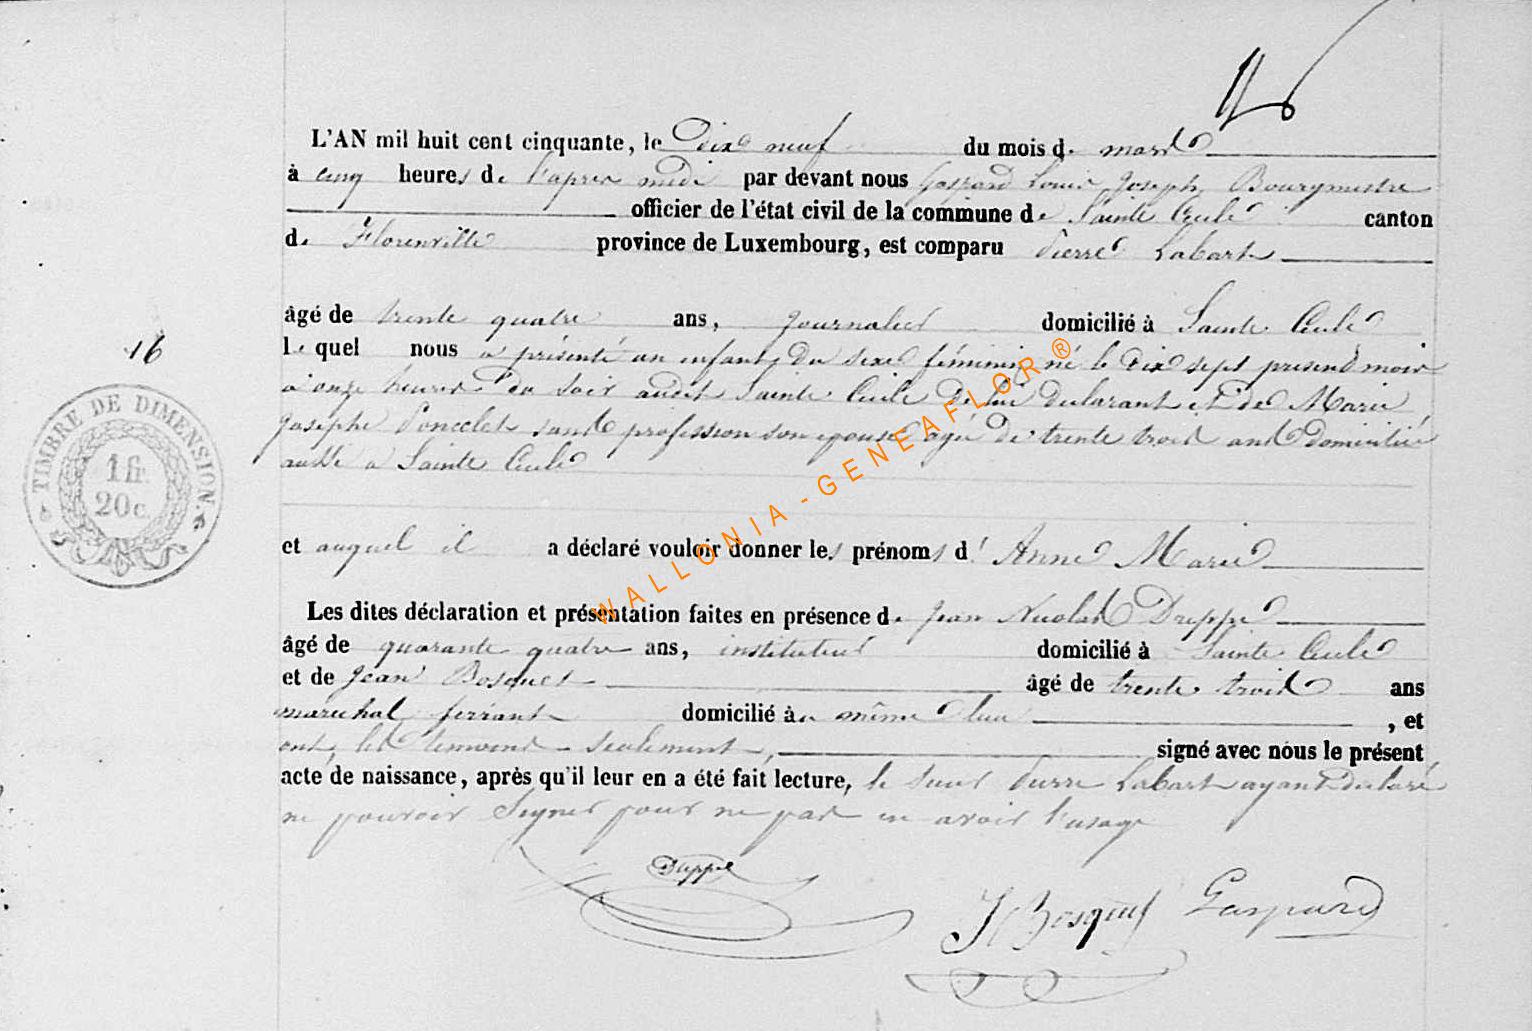 16
L'AN mil huit cent cinquante, le dix neuf du mois de mars
à cinq heures de l'après midi par devant nous Gaspard Louis Joseph, Bourgmestre
officier de l'état civil de la commune de Sainte Cecile canton
de Florenville province de Luxembourg, est comparu Pierre Labart
âgé de trente quatre ans, journalier domicilié à Sainte Cecile
Le quel nous a présenté un enfant du sexe féminin né le dix sept present mois
16
à onze heures du soir audit Sainte Cecile de lui declarant et de Marie
Josephe Poncelet sans profession son epouse agée de trente trois ans domiciliée
aussi a Sainte Cecile
TIMBRE DE DIMENSION.
1 fr.
20 c.
et auquel il a déclaré vouloir donner les prénoms d' Anne Marie
Les dites déclaration et présentation faites en présence de Jean Nicolas Dreppe
âgé de quarante quatre ans, instituteur domicilié à Sainte Cecile
et de Jean Bosquet âgé de trente trois ans
marechal ferrant domicilié au même lieu , et
ont les temoins seulement, signé avec nous le présent
acte de naissance, après qu'il leur en a été fait lecture, le sieur Pierre Labart ayant declaré
ne pouvoir signer pour ne pas en avoir l'usage
Dreppe
J Bosquet Gaspard
WALLONIA - GENEAFLOR ®